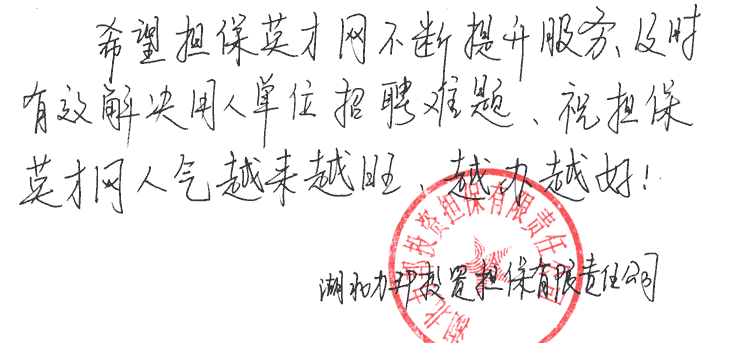 希望担保英才网不断提升服务、及时
有效解决用人单位招聘难题、祝担保
英才网人气越来越旺,越办越好!
投资担保有限责任公司
湖北 担保有限责任公司